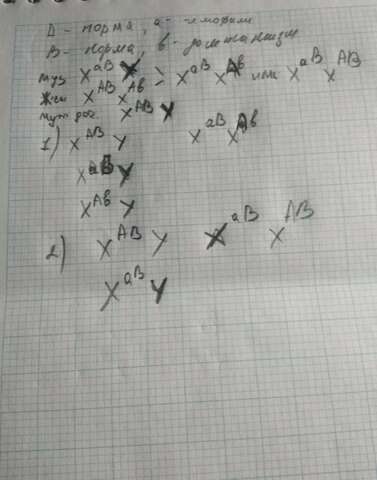 А - норма, а - гемофилия
В - норма, в - дальтонизм
муж X^aB Y > X^aB X^Ab или X^aB X^AB
жен X^AB X^Ab
муж дог. X^AB Y
1) X^AB Y X^aB X^Ab
X^aB Y
X^Ab Y
2) X^AB Y X^aB X^AB
X^aB Y